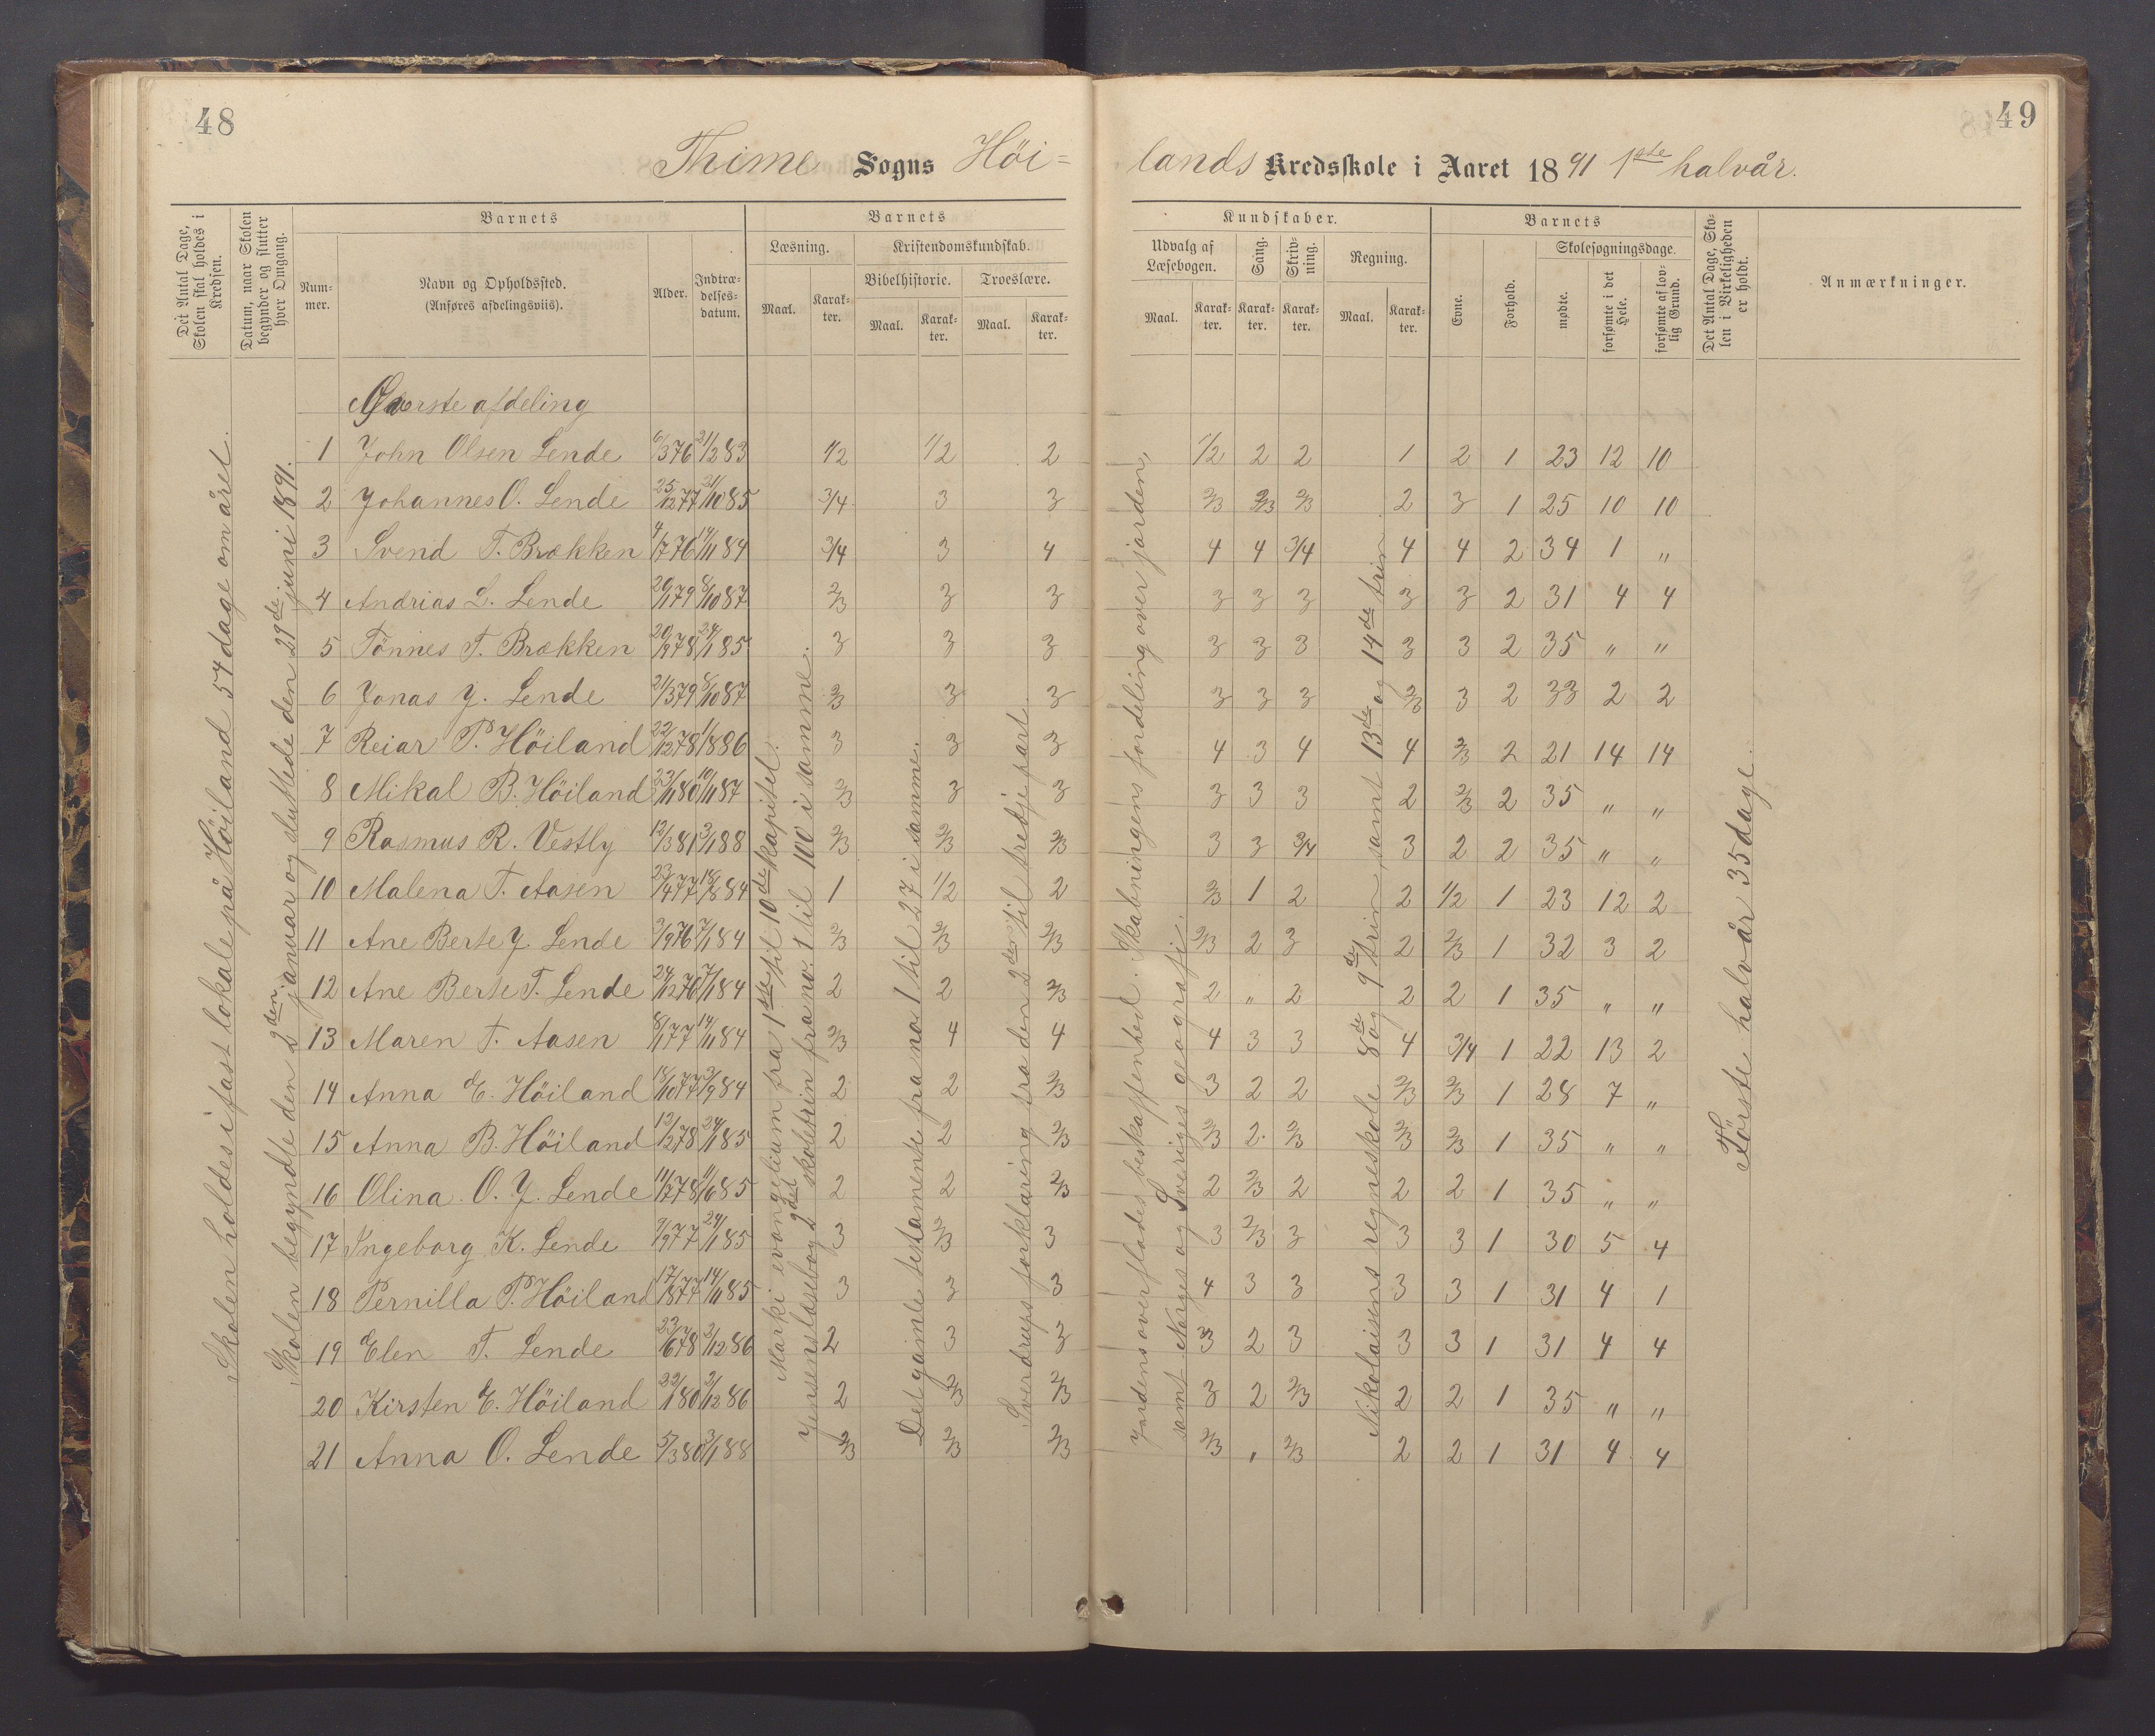 48
Thime Sogns Höi=
Det Antal Dage, Skolen skal holdes i Kredsen.
Datum, naar Skolen begynder og slutter hver Omgang.
Barnets
Num-mer.
Navn og Opholdssted. (Anføres afdelingsviis).
Alder.
Indtræ-delses-datum.
Barnets
Læsning.
Maal.
Karak-ter.
Kristendomskundskab.
Bibelhistorie.
Maal.
Karak-ter.
Troeslære.
Maal.
Karak-ter.
Skolen holdes i fast lokale på Höiland 54 dage om året.
Skolen begyndte den 2den januar og sluttede den 29de juni 1891.
Øverste afdeling
1 John Olsen Lende 6/3 76 21/2 83 1/2 1/2 2
2 Johannes O. Lende 25/12 77 21/10 85 3/4 3 3
3 Svend T. Brækken 4/7 76 14/11 84 3/4 3 4
4 Andrias L. Lende 20/1 79 8/10 87 2/3 3 3
5 Tönnes T. Brækken 20/9 78 24/1 85 3 3 3
6 Jonas J. Lende 21/3 79 8/10 87 2/3 3 3
7 Reiar P. Höiland 22/12 78 1/8 86 3 3 3
8 Mikal B. Höiland 23/11 80 10/11 87 2/3 3 3
9 Rasmus R. Vestly 12/3 81 3/1 88 2/3 2/3 2/3
10 Malena T. Aasen 23/4 77 18/8 84 1 1/2 2
11 Ane Berte J. Lende 2/9 76 7/1 84 2/3 2/3 2/3
12 Ane Berte T. Lende 24/12 76 7/1 84 2 2 2/3
13 Maren T. Aasen 8/1 77 14/11 84 2/3 4 4
14 Anna E. Höiland 18/10 77 2/9 84 2 2 2/3
15 Anna B. Höiland 12/2 78 24/1 85 2 2 2/3
16 Olina O. J. Lende 11/7 78 11/6 85 2 2 2/3
17 Ingeborg K. Lende 9/9 77 24/1 85 3 2/3 3
18 Pernilla P. Höiland 17/8 77 14/11 85 3 3 3
19 Elen T. Lende 23/6 78 2/12 86 2 3 3
20 Kirsten E. Höiland 22/1 80 2/12 86 2 2/3 2/3
21 Anna O. Lende 5/3 80 3/1 88 2/3 2/3 2/3
Marki evangelium fra 1ste til 10de kapitel.
Jensens læsebog 2det skoletrin fra no. 1 til 100 i samme.
Det gamle testamente fra no 1 til 27 i samme.
Sverdrups forklaring fra den 2den til tredje part.
49
lands Kredsskole i Aaret 1891 1ste halvår.
Kundskaber.
Udvalg af Læsebogen.
Maal.
Karak-ter.
Sang.
Karak-ter.
Skriv-ning.
Karak-ter.
Regning.
Maal.
Karak-ter.
Barnets
Evne.
Forhold.
Skolesøgningsdage.
mødte.
forsømte i det Hele.
forsømte af lov-lig Grund.
Det Antal Dage, Sko-len i Virkeligheden er holdt.
Anmærkninger.
1/2 2 2 1 2 1 23 12 10
2/3 2/3 2/3 2 3 1 25 10 10
4 4 3/4 4 4 2 34 1 "
3 3 3 3 3 2 31 4 4
3 3 3 3 3 2 35 " "
3 3 3 2/3 3 2 33 2 2
4 3 4 4 2/3 2 21 14 14
3 3 3 2 2/3 2 35 " "
3 3 3/4 3 2 2 35 " "
2/3 1 2 2 1/2 1 23 12 2
2/3 2 3 2 2/3 1 32 3 2
2 " 2 2 2 1 35 " "
4 3 3 4 3/4 1 22 13 2
3 2 2 2/3 2/3 1 28 7 "
2/3 2 2/3 2/3 2/3 1 35 " "
2 2/3 2 2 2 1 35 " "
3 2/3 3 3 3 1 30 5 4
4 3 3 3 3 1 31 4 1
2/3 2 3 3 3 1 31 4 4
3 2 2/3 2 2 1 35 " "
2/3 , 2/3 2 2 1 31 4 4
Jordens overflades beskaffenhed. Skabningens fordeling over jorden,
samt Norges og Sveriges geografi.
Nikolaisens regneskole 8de og 9de trin, samt 13de og 14de trin
Förste halvår 35 dage.